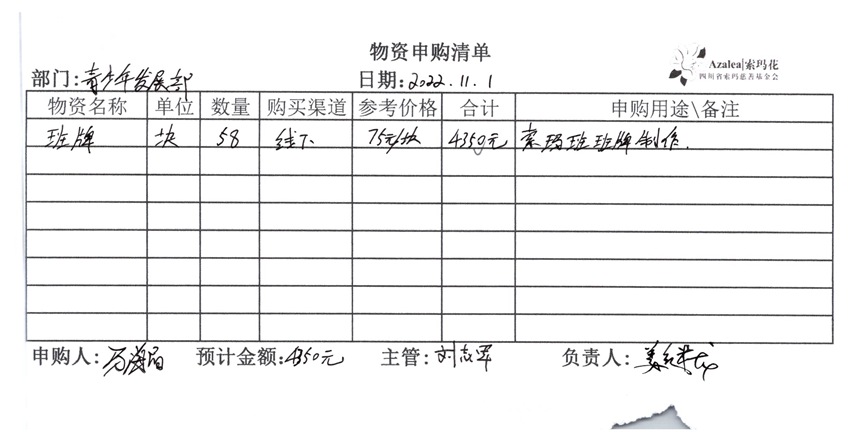 物资申购清单
Azalea|索玛花
四川省索玛慈善基金会
部门:青少年发展部 日期:2022.11.1
物资名称 单位 数量 购买渠道 参考价格 合计 申购用途\备注
班牌 块 58 线下 75元/块 4350元 索玛班班牌制作.
申购人: 预计金额:4350元 主管:刘志军 负责人: